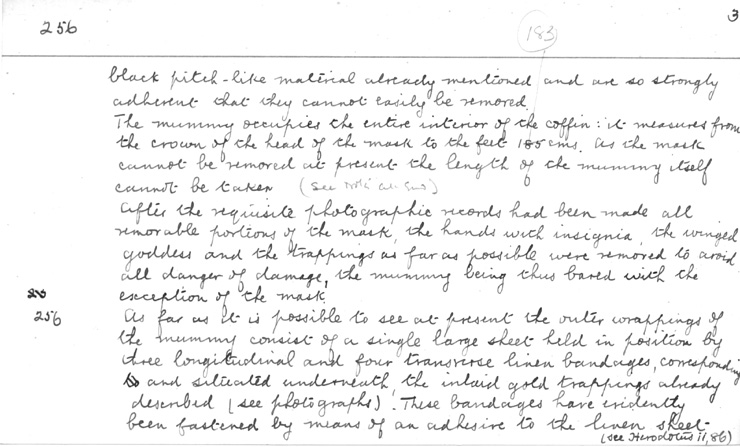 3
256
183
black pitch-like material already mentioned and are so strongly
adherent that they cannot easily be removed.
The mummy occupies the entire interior of the coffin: it measures from
the crown of the head of the mask to the feet 185 cms. As the mask
cannot be removed at present the length of the mummy itself
cannot be taken (see Note at end)
After the requisite photographic records had been made all
removable portions of the mask, the hands with insignia, the winged
goddess and the trappings as far as possible were removed to avoid
all danger of damage, the mummy being thus bared with the
exception of the mask.
256
As far as it is possible to see at present the outer wrappings of
the mummy consist of a single large sheet held in position by
three longitudinal and four transverse linen bandages, corresponding
to and situated underneath, the inlaid gold trappings already
described (see photographs). These bandages have evidently
been fastened by means of an adhesive to the linen sheet
(see Herodotus II, 86)